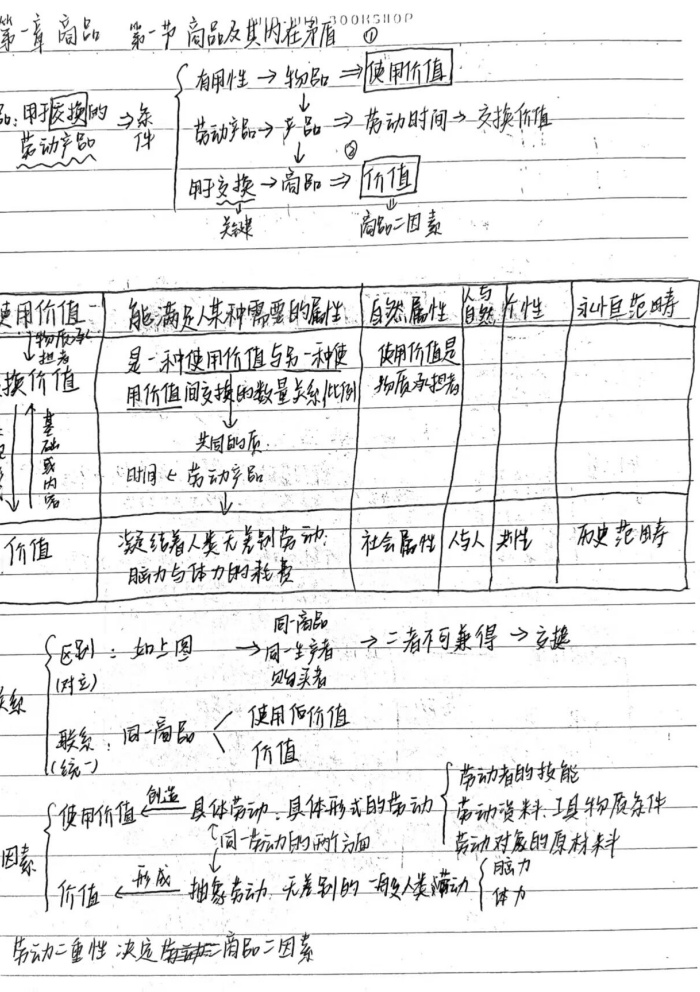 第一章 商品 第一节 商品及其内在矛盾 ①
BOOKSHOP
有用性 → 物品 ⇒ 使用价值
品: 用于交换的 ⇒ 条件
劳动产品
劳动产品 → 产品 ⇒ 劳动时间 → 交换价值
②
用于交换 → 商品 ⇒ 价值
关键 商品二因素
使用价值 能满足人某种需要的属性 自然属性 人与自然 个性 永恒范畴
物质承担者
换价值 是一种使用价值与另一种使用价值间交换的数量关系/比例 使用价值是物质承担者
基础或内容
共同的质
时间 ← 劳动产品
价值 凝结着人类无差别劳动. 脑力与体力的耗费 社会属性 人与人 共性 历史范畴
区别: 如上图 → 同一商品 同一生产者 购买者 → 二者不可兼得 → 交换
(对立)
系
联系: 同一商品 使用价值
(统一) 价值
因素
使用价值 ← 创造 具体劳动: 具体形式的劳动
劳动者的技能
劳动资料. 工具物质条件
劳动对象的原材料
同一劳动的两个方面
价值 ← 形成 抽象劳动. 无差别的一般人类劳动 脑力 体力
劳动二重性 决定 商品二因素